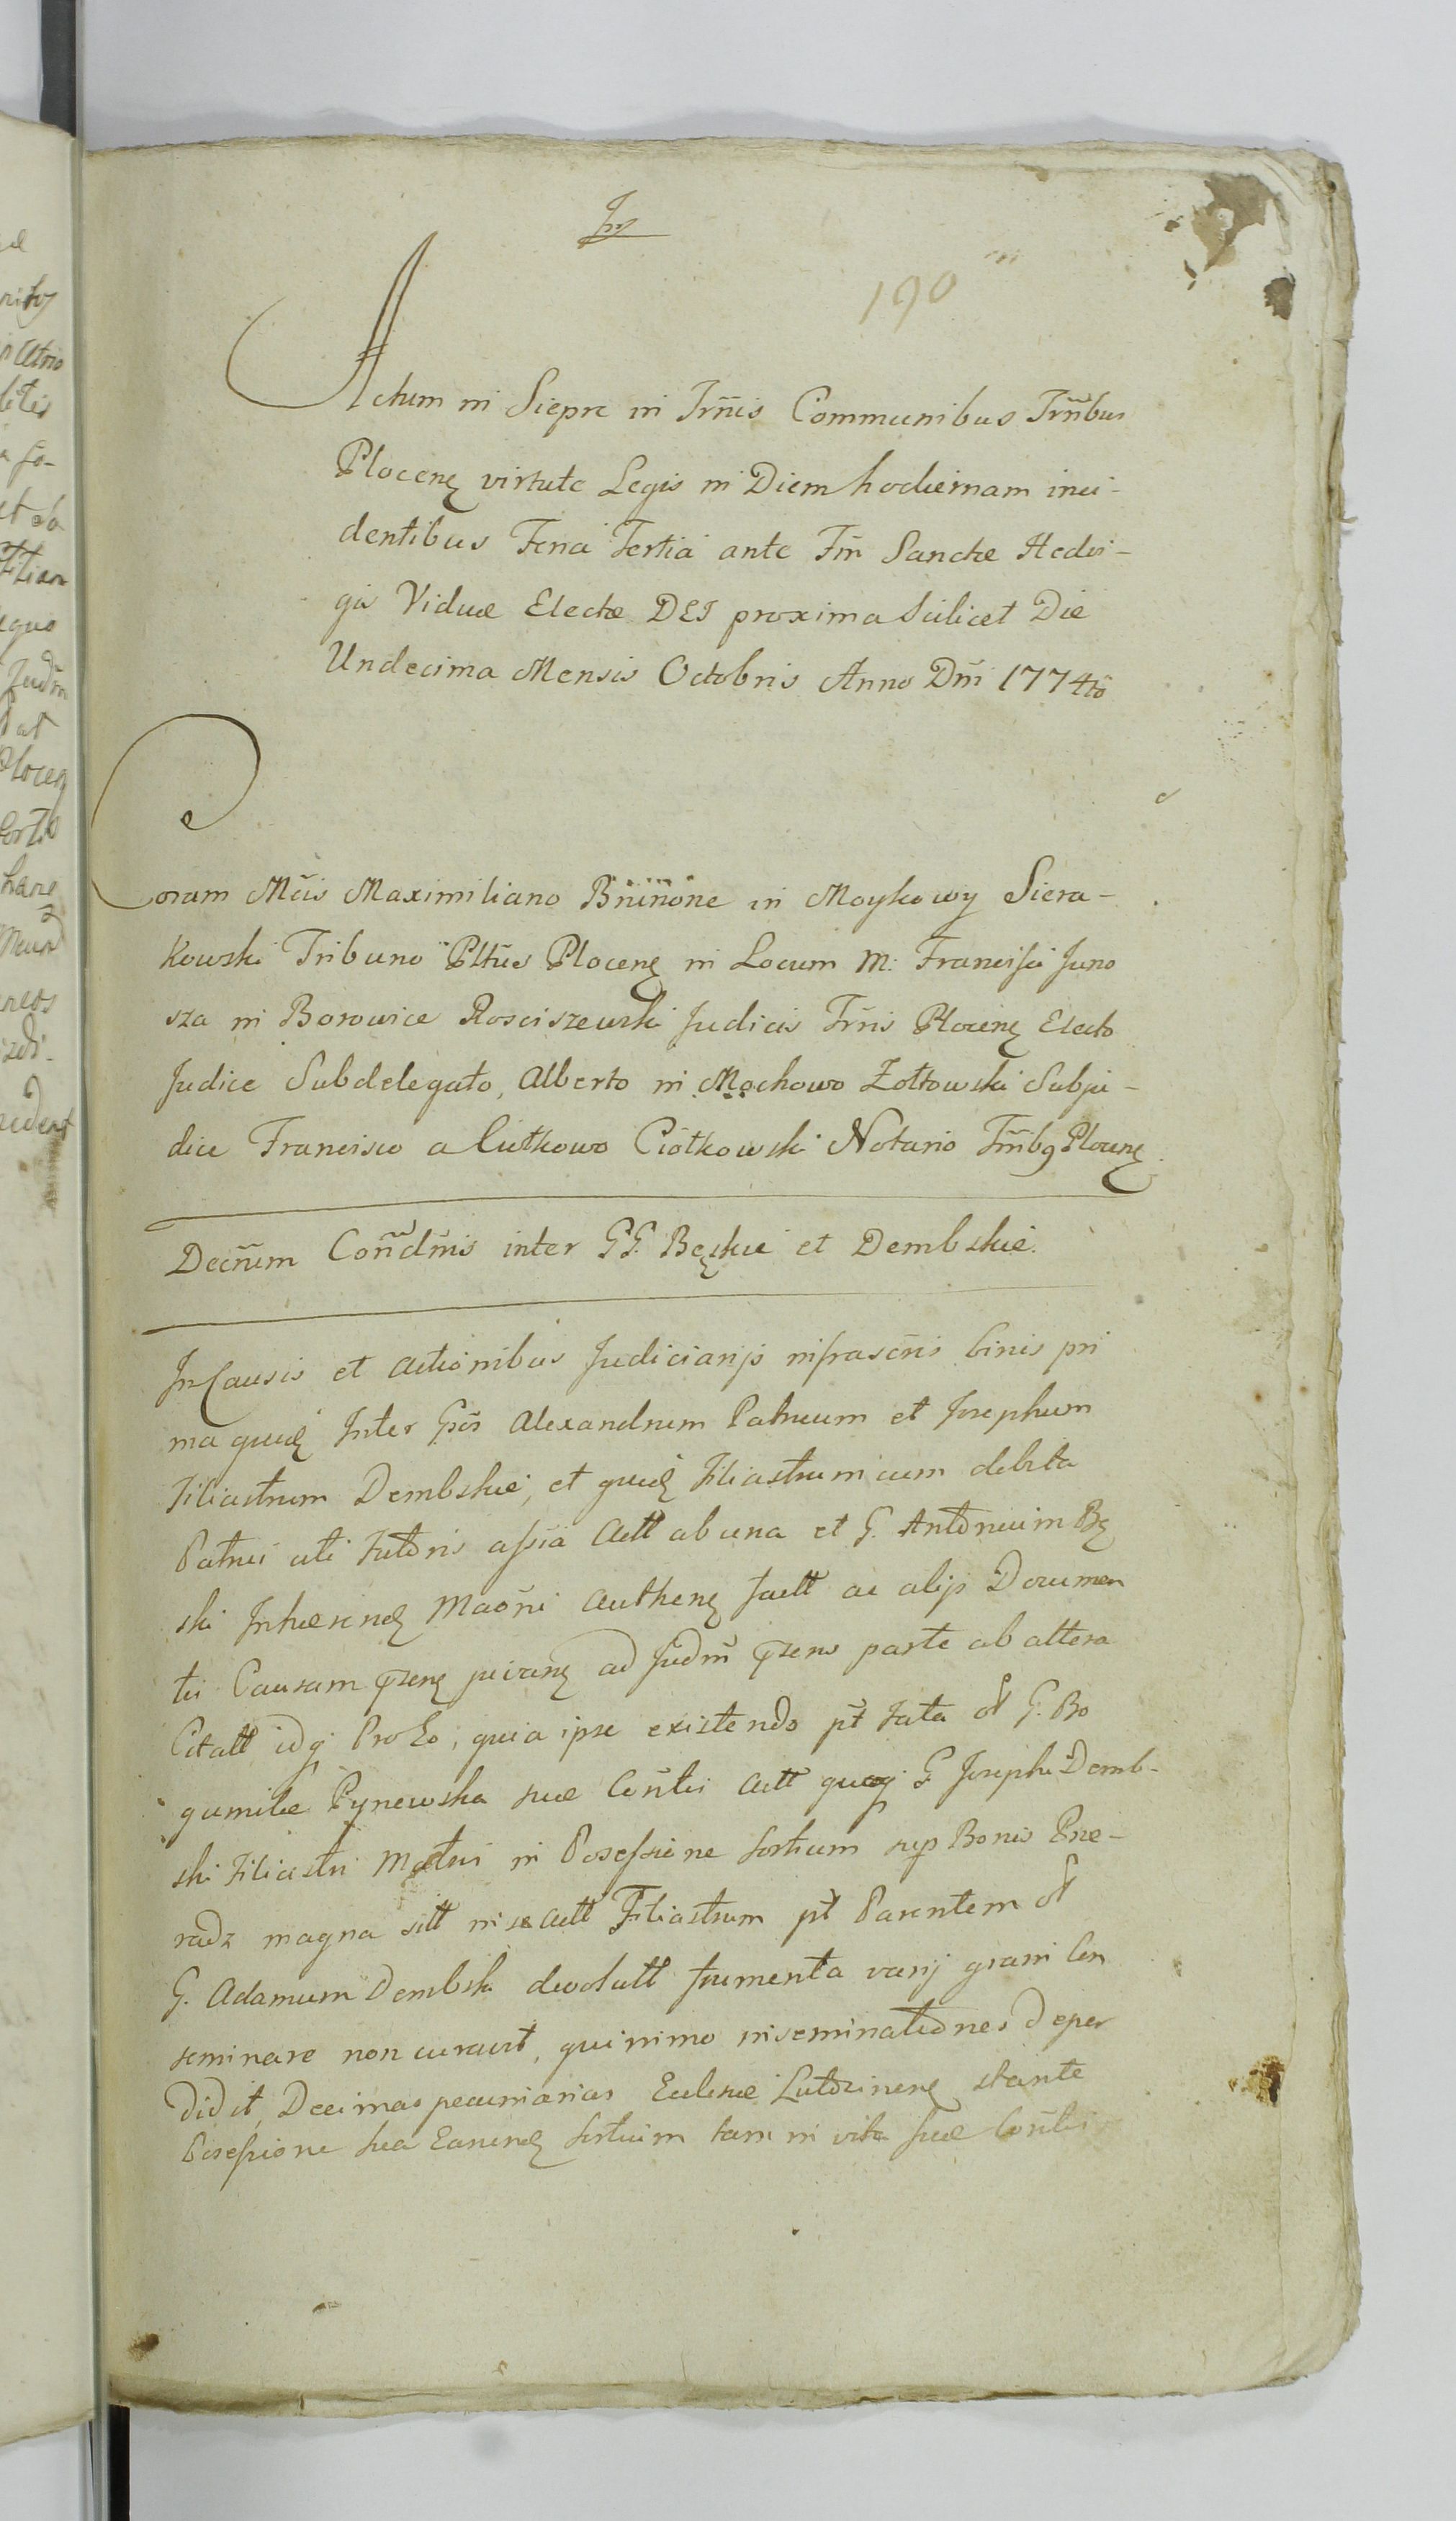 190
Actum in Siepre in Trnis Communibus Trnbus
Plocenę virtute Legis in Diem hodiernam inci-
dentibus Feria Tertia ante Fm Sanctæ Hedvi-
gis Viduæ Electæ DEI proxima scilicet Die
Undecima Mensis Octobris Anno Dni 1774to
Coram Mcis Maximiliano Bninone in Moykowy Siera-
kowski Tribuno Pltus Plocenę in Locum M: Francisci Juno
sza in Borowice Rosciszewski Judicis Trnis Plocenę Electo
Judice Subdelegato, Alberto in Mochowo Zołtowski Subju-
dice Francisco a Ciołkowo Ciołkowski Notario Trnibg Plocenę
Decnum Condnis inter GG. Bęskie et Dembskie.
In Causis et Actionibus Judiciarijs infrascris binis pri
ma quidę Inter Gsos Alexandrum Patruum et Josephum
Filiastrum Dembskie, et quidę Filiastrum cum debita
Patrui uti Tutoris assia Actt ab una et G. Antonium Bę
ski Inhærendę Maoni Authenę factt ac alijs Documen
tis Causam pzenę juvanę ad Judm pzens parte ab altera
Citatt idq Pro Eo, quia ipse existendo pt fata ol G. Bo
gumilæ Pynewska suæ Contis Actt quoq G Josephi Demb-
ski Filiastri Matris in Posessione sortium sup Bonis Pne-
radz magna sitt in se Actt Filiastrum pt Parentem ol
G. Adamum Dembski devolutt frumenta varij grani Con
seminare non curavit, quinimo inseminationes deper
didit, Decimas pecuniarias Eclesiæ Lutocinenę stante
Posessione sua Earundę sortium tam in vita suæ Contis